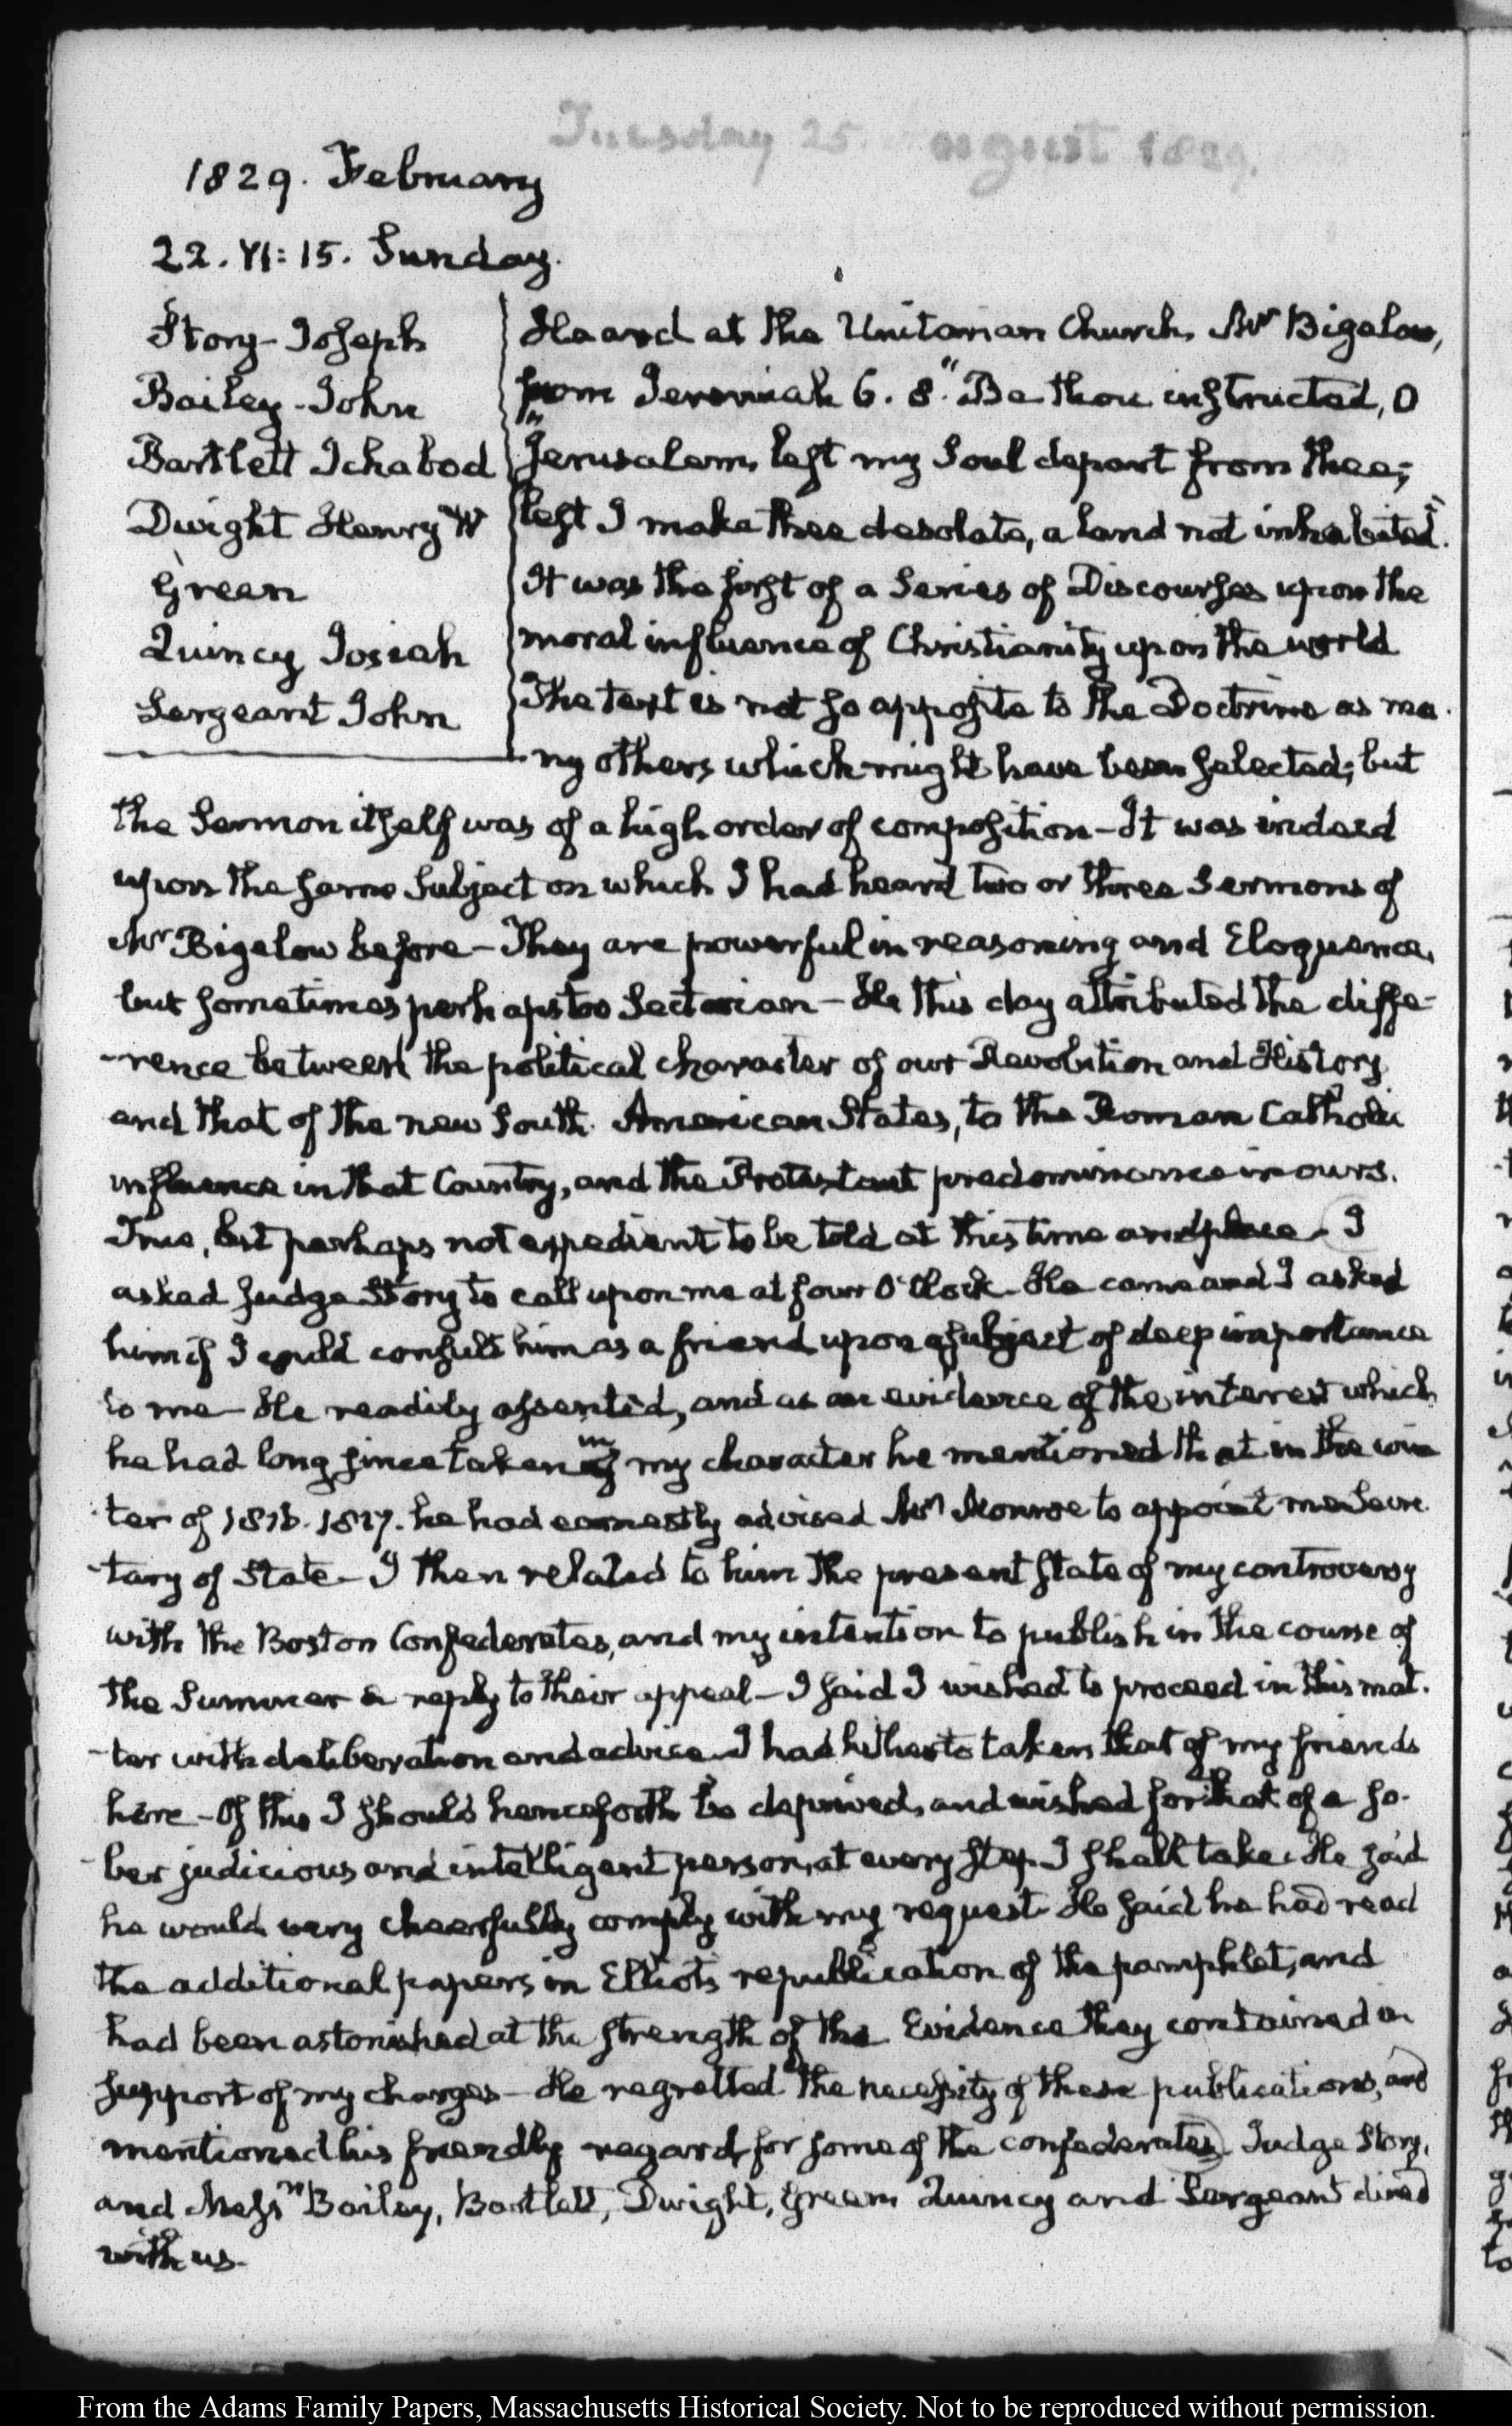 Tuesday 25. August 1829.
1829. February
22. VI: 15. Sunday.
Story - Joseph
Bailey - John
Bartlett Ichabod
Dwight Henry W
Green
Quincy Josiah
Sergeant John
Heard at the Unitarian Church, Mr Bigelow,
from Jeremiah 6. 8. "Be thou instructed, O
"Jerusalem, lest my Soul depart from thee;
lest I make thee desolate, a land not inhabited."
It was the first of a Series of Discourses upon the
moral influence of Christianity upon the world
The text is not so apposite to the Doctrine as ma-
ny others which might have been selected; but
the Sermon itself was of a high order of composition - It was indeed
upon the same Subject on which I had heard two or three Sermons of
Mr Bigelow before - They are powerful in reasoning and Eloquence,
but sometimes perhaps too Sectarian - He this day attributed the diffe-
-rence between the political character of our Revolution and History
and that of the new South American States, to the Roman Catholic
influence in that Country, and the Protestant predominance in ours.
True, but perhaps not expedient to be told at this time and place - I
asked Judge Story to call upon me at four O'Clock - He came and I asked
him if I could consult him as a friend upon a subject of deep importance
to me - He readily assented, and as an evidence of the interest which
he had long since taken in my character he mentioned that in the win
ter of 1816. 1817. he had earnestly advised Mr Monroe to appoint me Secre
-tary of State - I then related to him the present state of my controversy
with the Boston Confederates, and my intention to publish in the course of
the Summer a reply to their appeal - I said I wished to proceed in this mat-
-ter with deliberation and advice - I had hitherto taken that of my friends
here - Of this I should henceforth be deprived, and wished for that of a so-
-ber judicious and intelligent person, at every step I shall take. He said
he would very cheerfully comply with my request - He said he had read
the additional papers in Elliot's republication of the pamphlet, and
had been astonished at the strength of the Evidence they contained in
support of my charges - He regretted the necessity of these publications, and
mentioned his friendly regard for some of the confederates. Judge Story,
and Messrs Bailey, Bartlett, Dwight, Green Quincy and Sergeant dined
with us.
From the Adams Family Papers, Massachusetts Historical Society. Not to be reproduced without permission.